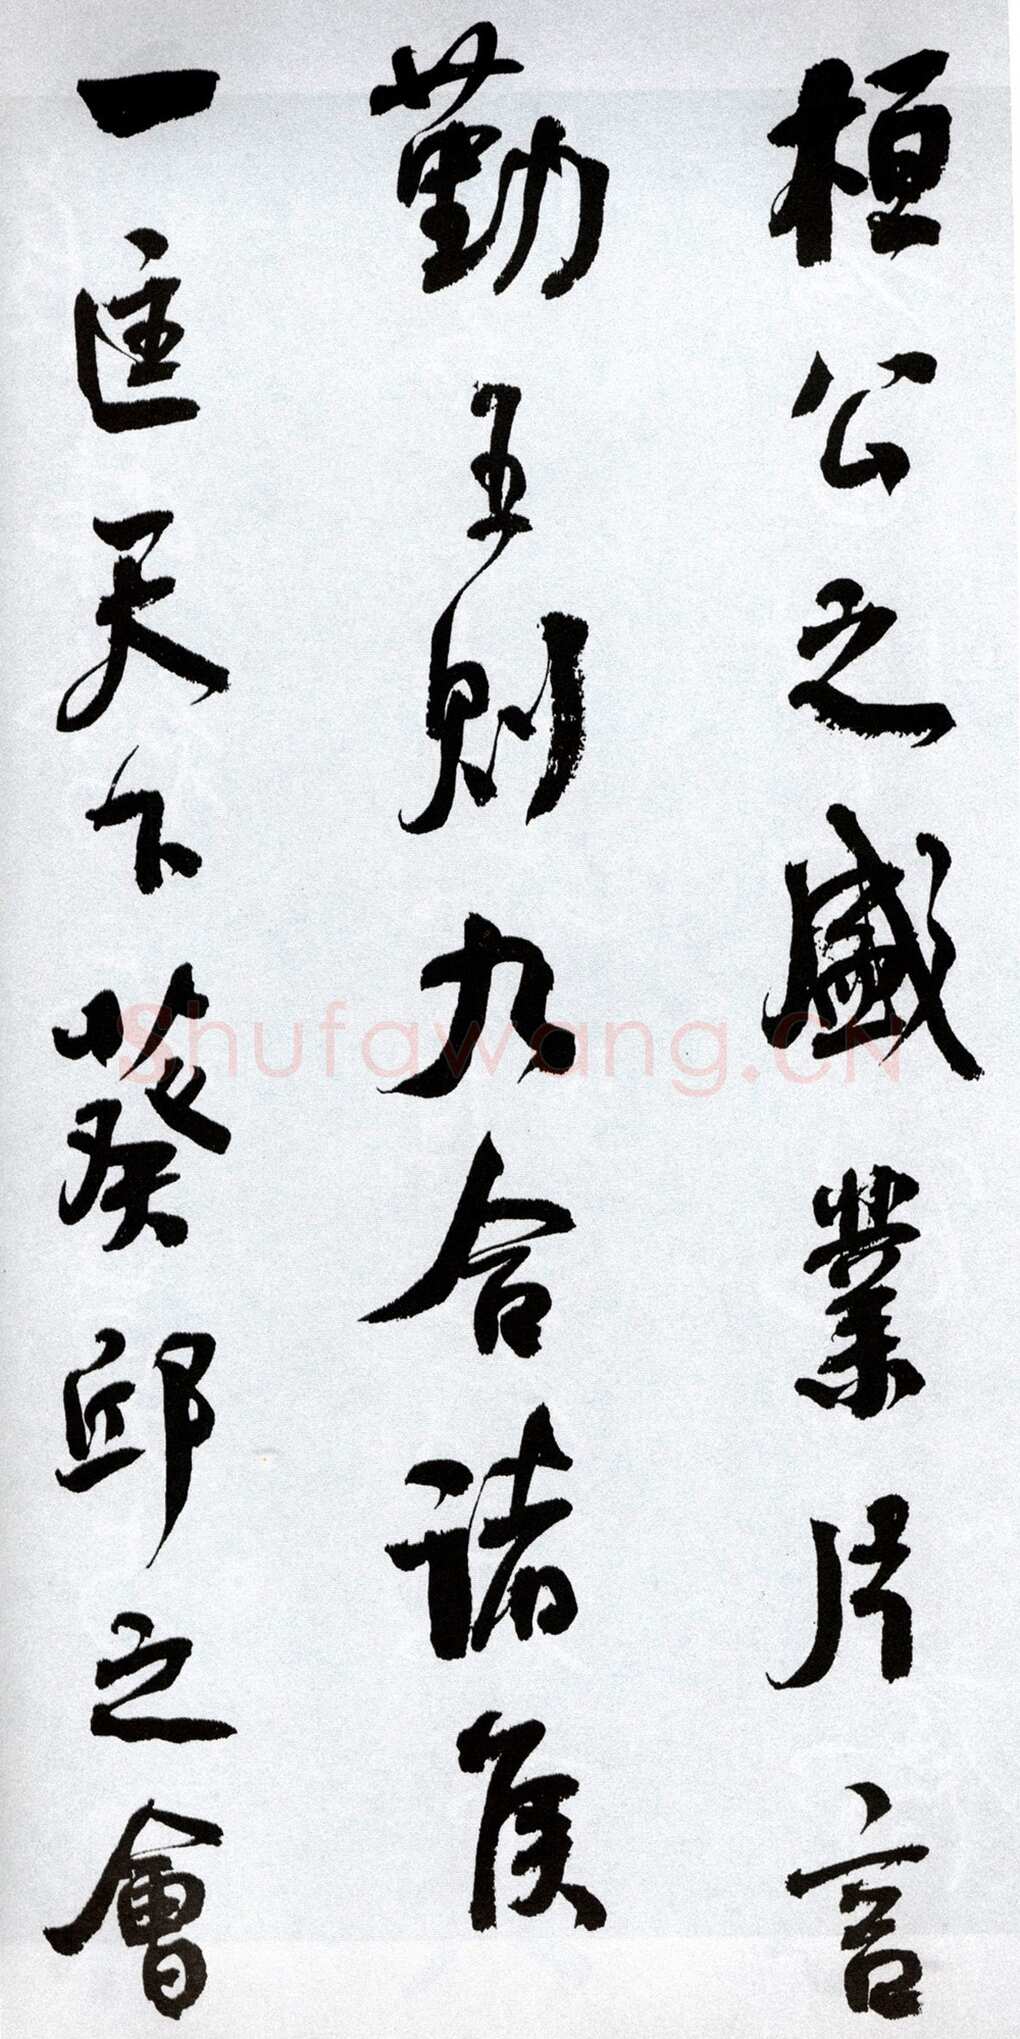 桓公之盛業片言
勤王則九合諸侯
一匡天下葵邱之會
Shufawang.CN